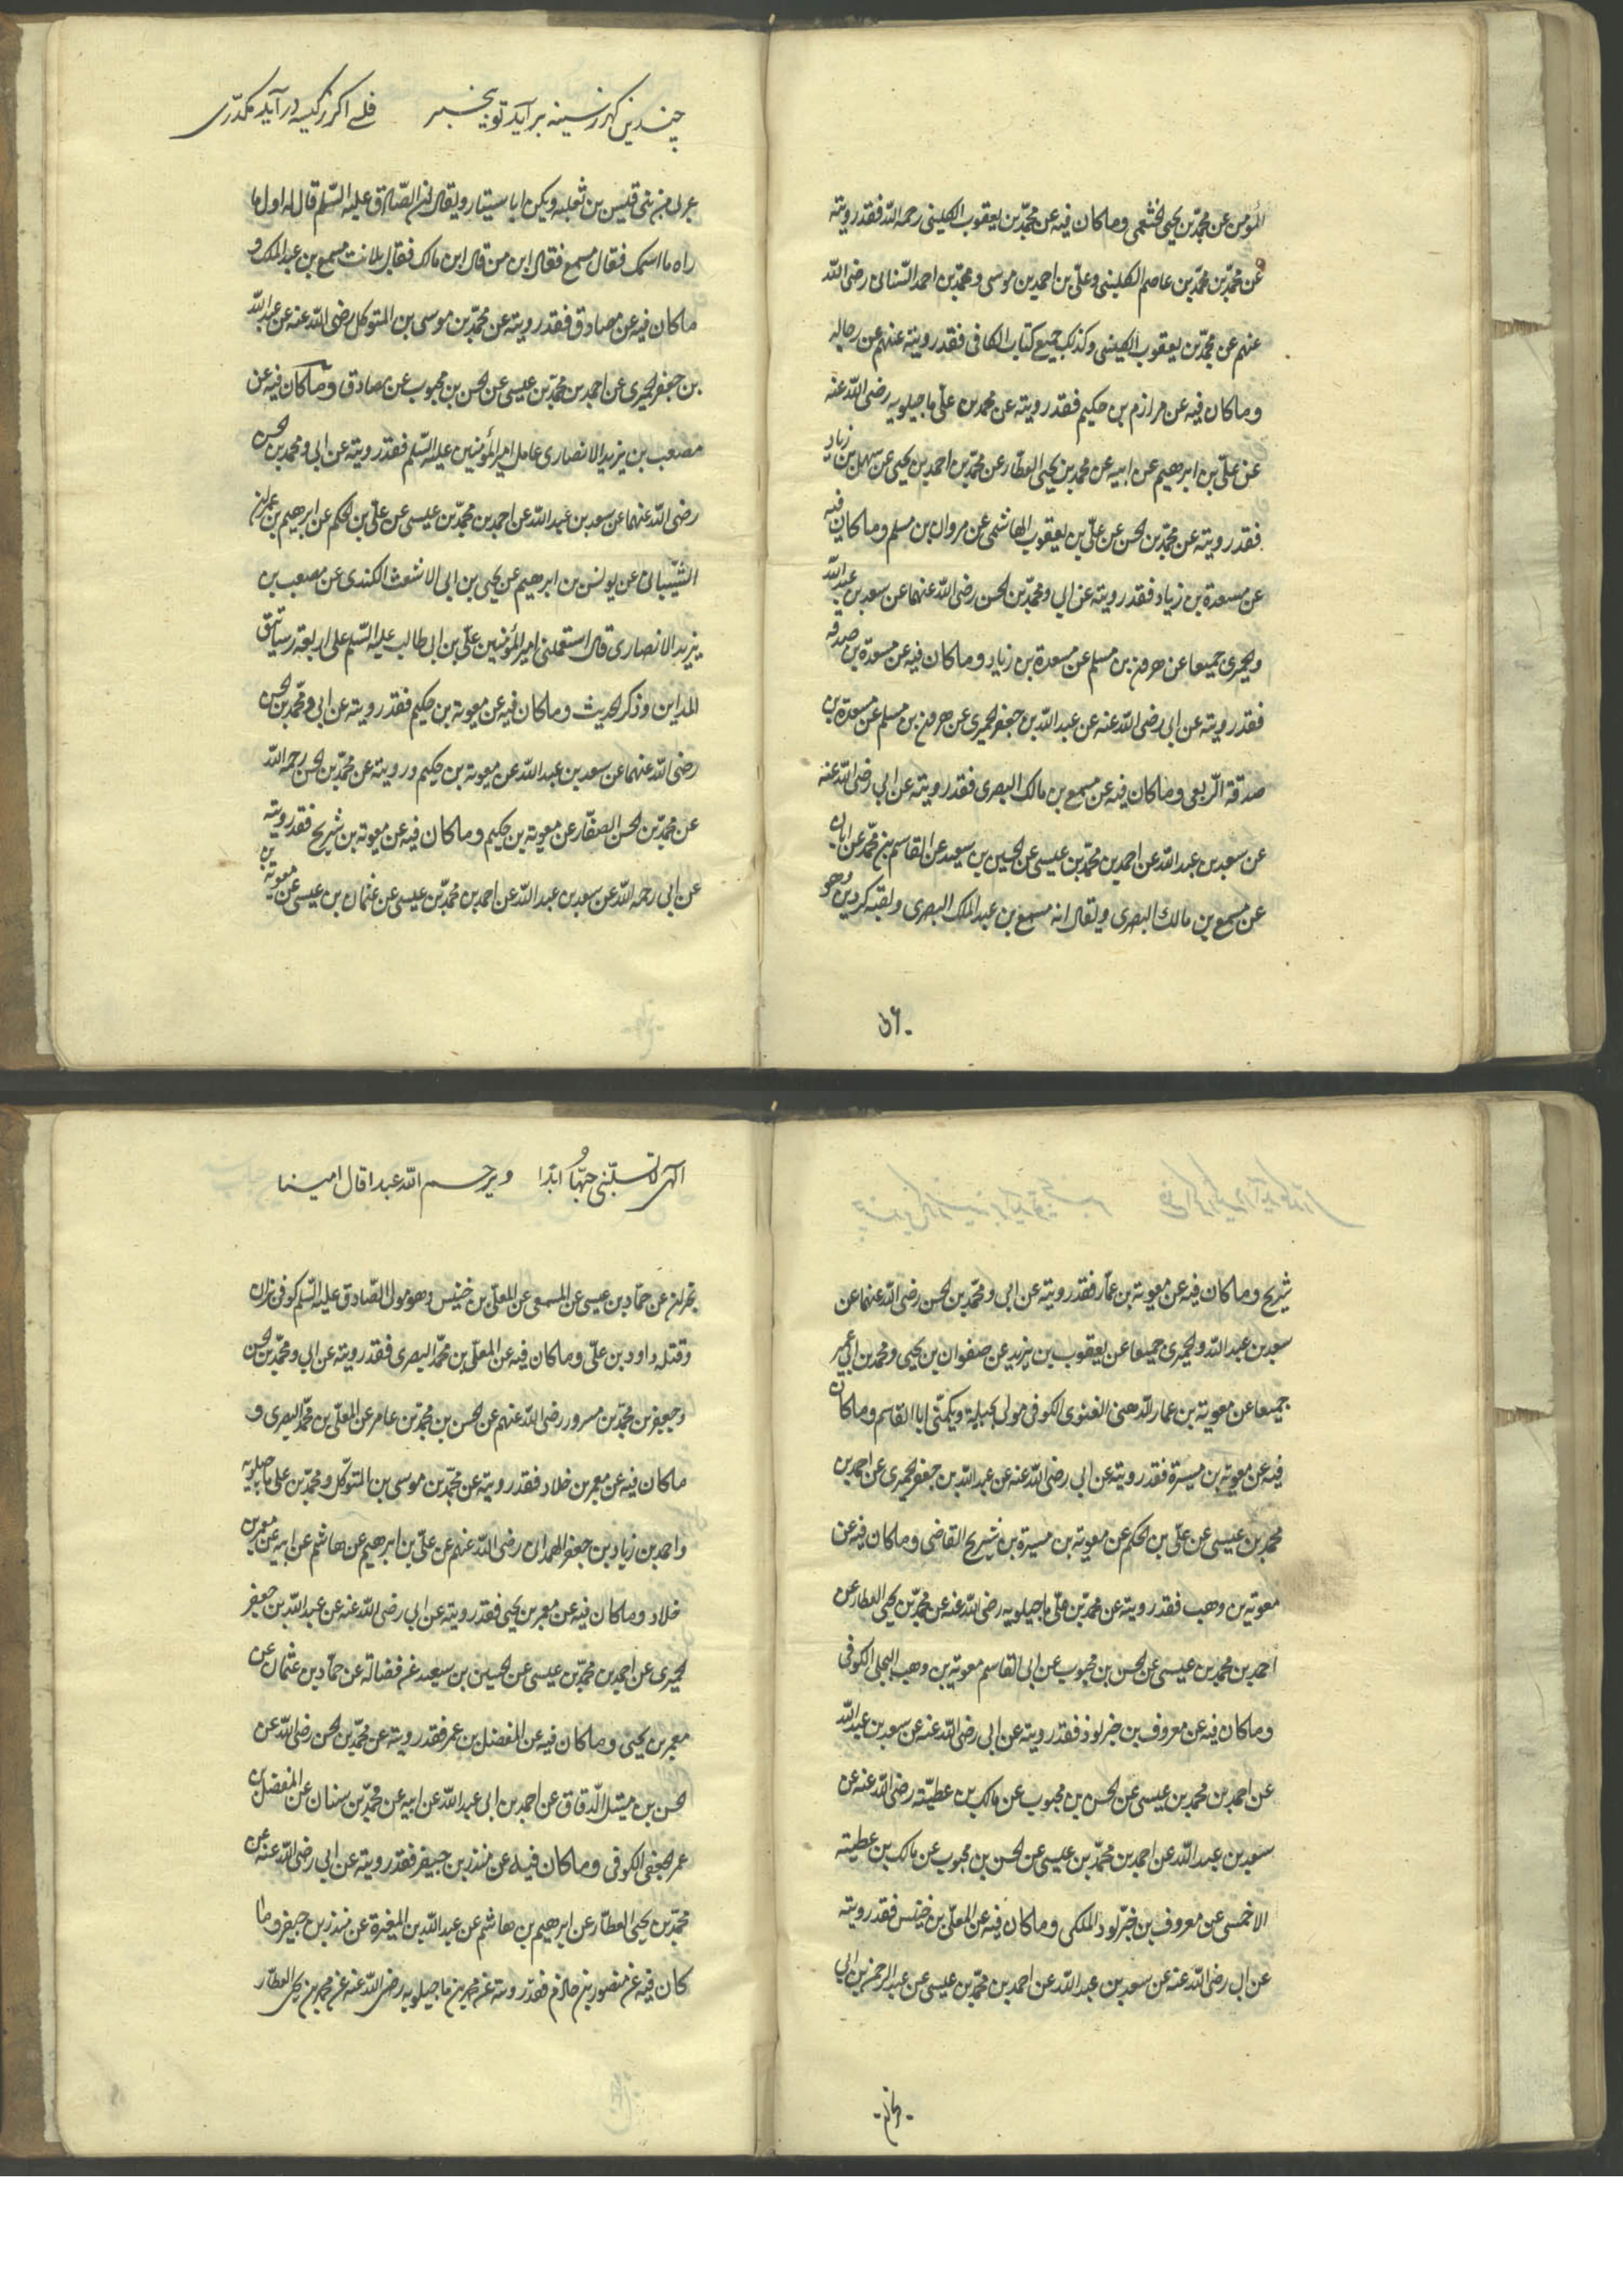 المؤمن عن محمّد بن يحيى الخثعمى وماكان فيه عن محمّد بن يعقوب الكلينى رحمه الله فقد رويته
عن محمّد بن محمّد بن عاصم الكلينى وعلى بن احمد بن موسى ومحمّد بن احمد السّنانى رضى الله
عنهم عن محمّد بن يعقوب الكلينى وكذلك جميع كتاب الكافى فقد رويته عنهم عن رجاله
وماكان فيه عن مرازم بن حكيم فقد رويته عن محمد بن على ماجيلويه رضى الله عنه
عن علىّ بن ابرهيم عن ابيه عن محمد بن يحيى العطار عن محمّد بن احمد بن يحيى عن سهل بن زياد
فقد رويته عن محمّد بن الحسن عن علىّ بن يعقوب الهاشمى عن مروان بن مسلم وماكان فيه
عن مسعدة بن زياد فقد رويته عن ابى ومحمّد بن الحسن رضى الله عنهما عن سعد بن عبد الله
والحميرى جميعا عن هرون بن مسلم عن مسعدة بن زياد وماكان فيه عن مسعدة بن صدقه
فقد رويته عن ابى رضى الله عنه عن عبد الله بن جعفر الحميرى عن هرون بن مسلم عن مسعدة بن
صدقة الرّبعى وماكان فيه عن مسمع بن مالك البصرى فقد رويته عن ابى رضى الله عنه
عن سعد بن عبد الله عن احمد بن محمّد بن عيسى عن الحسين بن سعيد عن القاسم بن محمّد عن ابان
عن مسمع بن مالك البصرى ويقال انه مسمع بن عبد الملك البصرى ولقبه كردين وهو
چندين كهر ز سينه بر آيد تو بيخبر فلسى اكر ز كيسه در آيد مكدّرى
عربى من بنى قيس بن ثعلبه ويكنى ابا سيّار ويقال ان الصّادق عليه السّلم قال له اول ما
راه ما اسمك فقال مسمع فقال ابن من قال ابن مالك فقال بل انت مسمع بن عبد الملك و
ماكان فيه عن مصادق فقد رويته عن محمّد بن موسى بن المتوكل رضى الله عنه عن عبد الله
بن جعفر الحميرى عن احمد بن محمّد بن عيسى عن الحسن بن محبوب عن مصادق وماكان فيه عن
مصعب بن يزيد الانصارى عامل امير المؤمنين عليه السّلم فقد رويته عن ابى ومحمد بن الحسن
رضى الله عنهما عن سعد بن عبد الله عن احمد بن محمّد بن عيسى عن علىّ بن الحكم عن ابرهيم بن عمران
الشّيبانى عن يونس بن ابرهيم عن يحيى بن ابى الاشعث الكندى عن مصعب بن
يزيد الانصارى قال استعملنى امير المؤمنين علىّ بن ابى طالب عليه السّلم على اربعة رساتيق
المداين وذكر الحديث وماكان فيه عن معوية بن حكيم فقد رويته عن ابى ومحمّد بن الحسن
رضى الله عنهما عن سعد بن عبد الله عن معوية بن حكيم ورويته عن محمّد بن الحسن رحمه الله
عن محمّد بن الحسن الصفّار عن معوية بن حكيم وماكان فيه عن معوية بن شريح فقد رويته
عن ابى رحمه الله عن سعد بن عبد الله عن احمد بن محمّد بن عيسى عن عثمان بن عيسى عن معوية بن
شريح وماكان فيه عن معوية بن عمّار فقد رويته عن ابى ومحمّد بن الحسن رضى الله عنهما عن
سعد بن عبد الله والحميرى جميعا عن يعقوب بن يزيد عن صفوان بن يحيى ومحمد بن ابى عمير
جميعا عن معوية بن عمار الدهنى الغنوى الكوفى مولى بجيلة ويكنّى ابا القاسم وماكان
فيه عن معوية بن ميسرة فقد رويته عن ابى رضى الله عنه عن عبد الله بن جعفر الحميرى عن احمد بن
محمد بن عيسى عن علىّ بن الحكم عن معوية بن ميسرة بن شريح القاضى وماكان فيه عن
معوية بن وهب فقد رويته عن محمّد بن علّى ماجيلويه رضى الله عنه عن محمّد بن يحيى العطار عن
احمد بن محمد بن عيسى عن الحسن بن محبوب عن ابى القاسم معوية بن وهب البجلى الكوفى
وماكان فيه عن معروف بن خربوذ فقد رويته عن ابى رضى الله عنه عن سعد بن عبد الله
عن احمد بن محمد بن عيسى عن الحسن بن محبوب عن مالك بن عطيّة رضى الله عنه عن
سعد بن عبد الله عن احمد بن محمّد بن عيسى عن الحسن بن محبوب عن مالك بن عطيته
الاحمسى عن معروف بن خرّبوذ المكى وماكان فيه عن المعلّى بن خنيس فقد رويته
عن ابى رضى الله عنه عن سعد بن عبد الله عن احمد بن محمّد بن عيسى عن عبد الرحمن بن ابى
الهى لا تسلبنى حبّها ابدا ويرحم الله عبدا قال امينا
نجران عن حمّاد بن عيسى عن المسمعى عن المعلّى بن خنيس وهو مولى الصّادق عليه السّلم كوفى بزاز
وقتله داود بن علىّ وماكان فيه عن المعلّى بن محمّد البصرى فقد رويته عن ابى ومحمّد بن الحسن
وجعفر بن محمّد بن مسرور رضى الله عنهم عن الحسين بن محمّد بن عامر عن المعلّى بن محمّد البصرى و
ماكان فيه عن معمر بن خلاد فقد رويته عن محمّد بن موسى بن المتوكّل ومحمّد بن على ماجيلويه
واحمد بن زياد بن جعفر الهمدانى رضى الله عنهم عن علىّ بن ابرهيم عن هاشم عن ابيه عن معمر بن
خلاد وماكان فيه عن معمر بن يحيى فقد رويته عن ابى رضى الله عنه عن عبد الله بن جعفر
الحميرى عن احمد بن محمّد بن عيسى عن الحسين بن سعيد عن فضالة عن حمّاد بن عثمان عن
معمر بن يحيى وماكان فيه عن المفضل بن عمر فقد رويته عن محمّد بن الحسن رضى الله عن
الحسن بن متيل الدّقاق عن احمد بن ابى عبد الله عن ابيه عن محمّد بن سنان عن المفضل بن
عمر الجعفى الكوفى وماكان فيه عن منذر بن جيفر فقد رويته عن ابى رضى الله عنه عن
محمّد بن يحيى العطّار عن ابرهيم بن هاشم عن عبد الله بن المغيرة عن منذر بن جيفر وما
كان فيه عن منصور بن حازم فقد رويته عن محمد بن ماجيلويه رضى الله عنه عن محمد بن يحيى العطّار